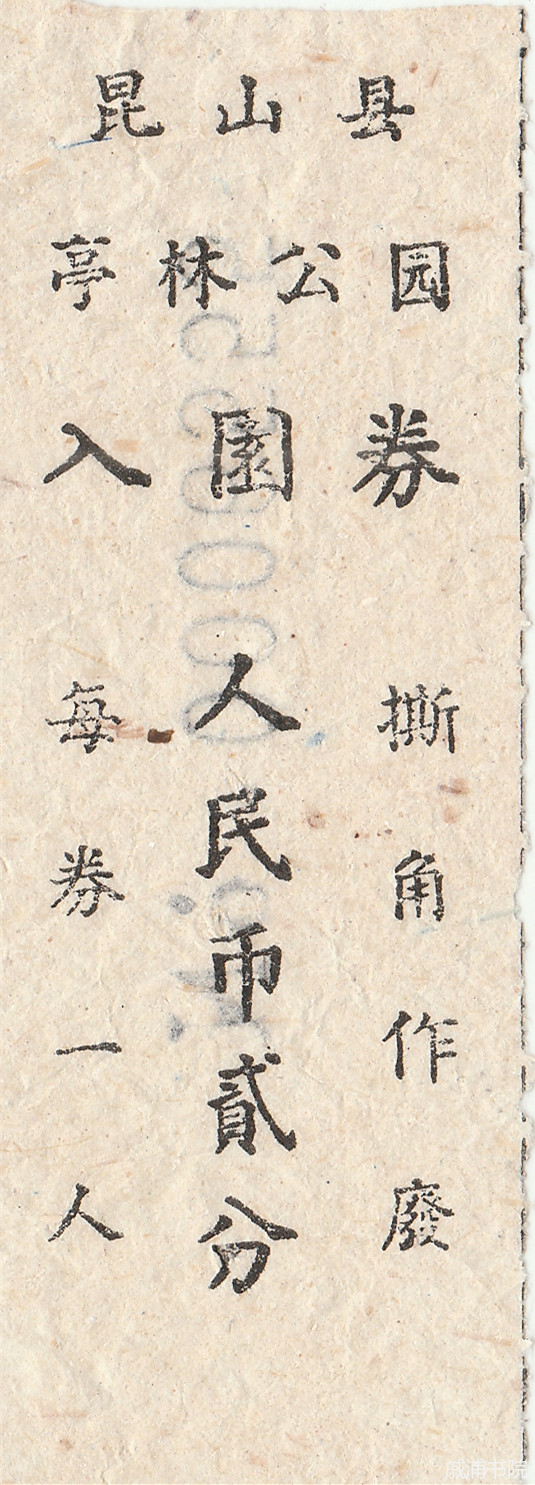 昆山县
亭林公园
入園券
人民币貳分
每券一人
撕角作廢
戚浦书院